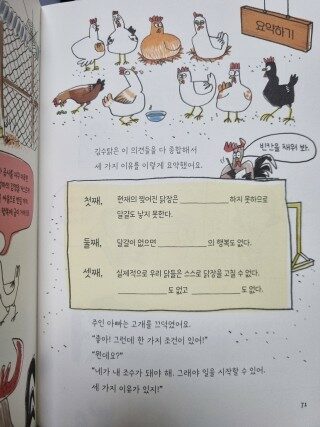 요약하기
김수탉은 이 의견들을 다 종합해서
세 가지 이유를 이렇게 요약했어요.
빈칸을 채워 봐.
첫째, 현재의 찢어진 닭장은 __________ 하지 못하므로
알길도 낳지 못한다.
둘째, 달걀이 없으면 __________의 행복도 없다.
셋째, 실제적으로 우리 닭들은 스스로 닭장을 고칠 수 없다.
__________도 없고 __________도 없다.
주인 아빠는 고개를 끄덕였어요.
"좋아! 그런데 한 가지 조건이 있어!"
"뭔데요?"
"네가 내 조수가 돼야 해. 그래야 일을 시작할 수 있어.
세 가지 이유가 있지!"